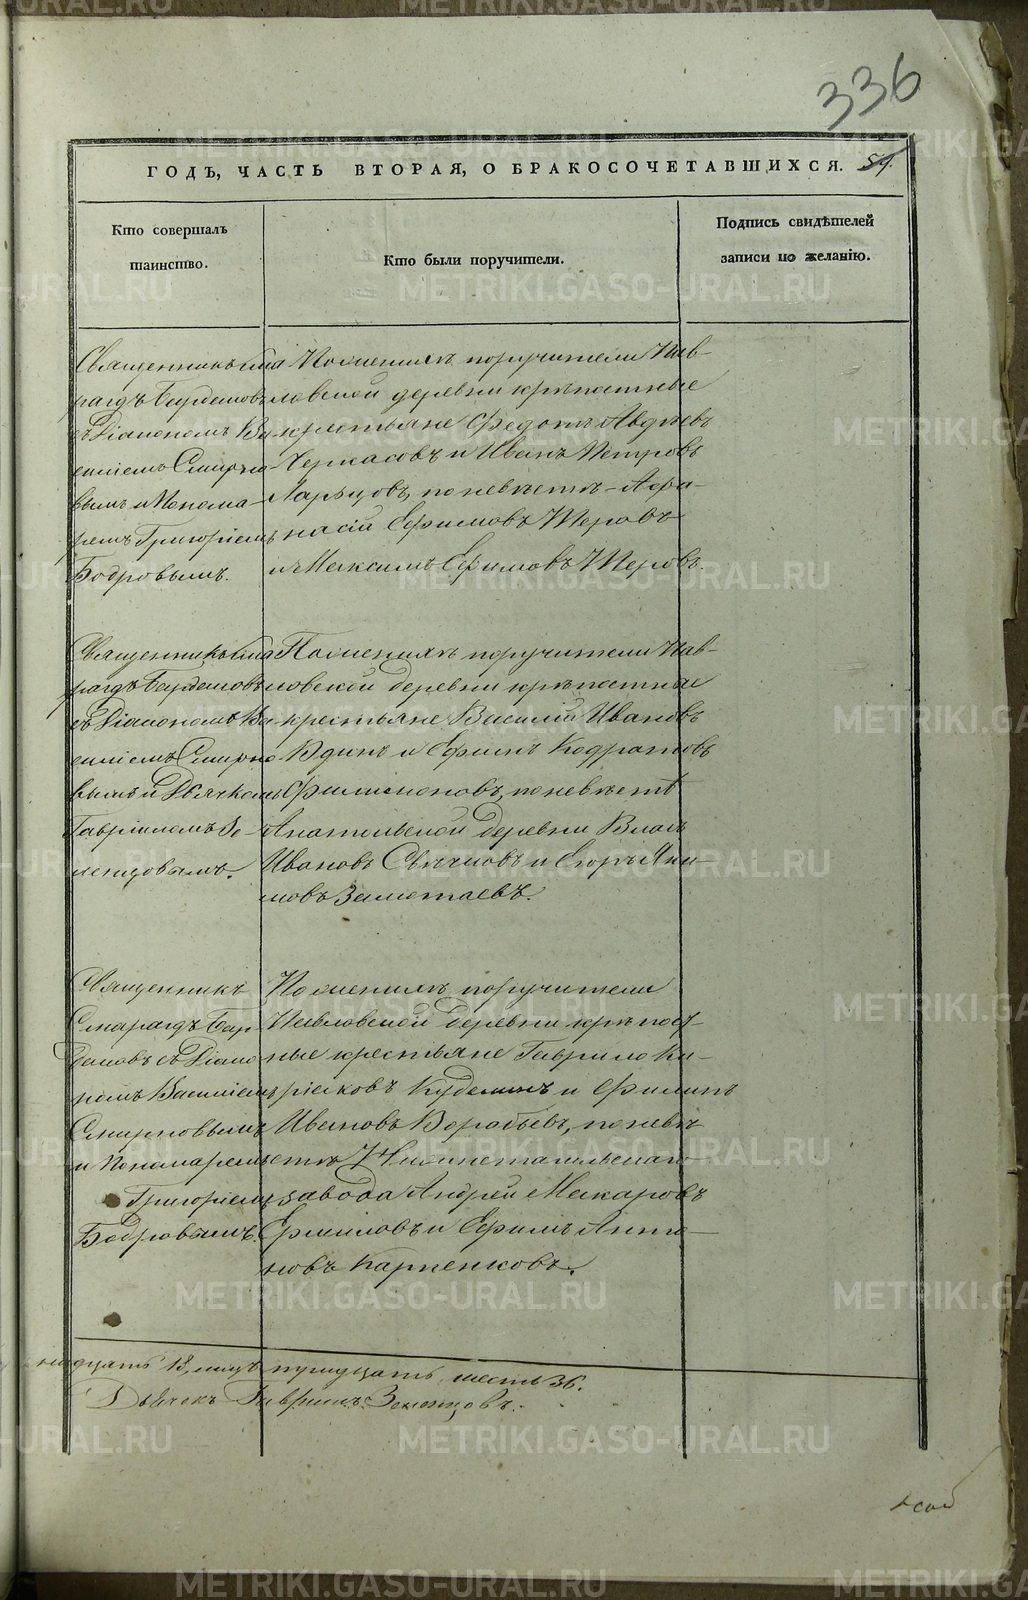 336
ГОДЪ, ЧАСТЬ ВТОРАЯ, О БРАКОСОЧЕТАВШИХСЯ. 59.
Кто совершалъ
таинство.
Кто были поручители.
Подпись свидѣтелей
записи по желанію.
Священникъ Сма
рагдъ Бардамовъ
съ Діакономъ Ва
силіемъ Смирно
вымъ и Понома-
ремъ Григоріемъ
Бодровымъ.
По женихѣ поручители Пав-
ловской деревни крѣпостные
крестьяне Федотъ Авдѣевъ
Черкасовъ и Иванъ Петровъ
по невѣстѣ Афа-
насій Ефимовъ Шеровъ
и Максимъ Ефимовъ Шеровъ.
Священникъ Сма
рагдъ Бардамовъ
съ Діакономъ Ва
силіемъ Смирно
вымъ и Дьячкомъ
Гавріиломъ Зе-
ленцовымъ.
По женихѣ поручители Пав-
ловской деревни крѣпостные
крестьяне Василій Ивановъ
Вдинъ и Ефимъ Кодратовъ
Филимоновъ, по невѣстѣ
Анатольской деревни Власъ
Ивановъ и Егоръ Яки-
мовъ Замотаевъ.
Священникъ
Смарагдъ Бар-
дамовъ съ Діако
номъ Василіемъ
Смирновымъ
и Пономаремъ
Григоріемъ
Бодровымъ.
По женихѣ поручители
Павловской деревни крѣпост-
ные крестьяне Гаврило Ки-
ріяковъ Куделинъ и Филипъ
Ивановъ Воробьевъ, по невѣ
стѣ Нижнетагильскаго
завода Андрей Макаровъ
Ермиловъ и Ефимъ Анто-
новъ Карпенковъ.
надцать 18, лицъ тридцать шесть 36.
Дьячекъ Гавріилъ Зеленцовъ.